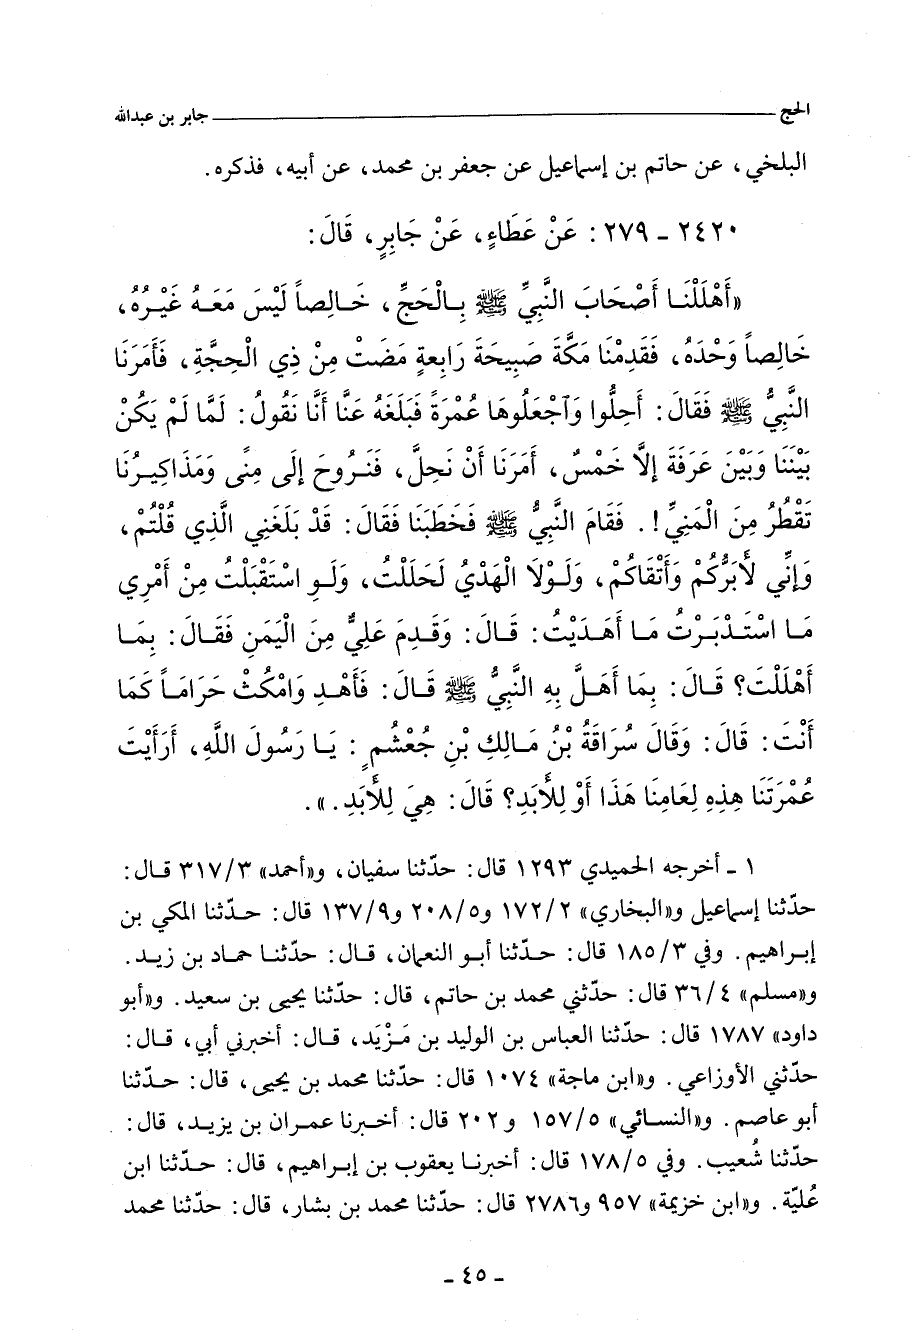 الحج جابر بن عبدالله
البلخي، عن حاتم بن إسماعيل عن جعفر بن محمد، عن أبيه، فذكره.
٢٤٢٠ - ٢٧٩: عَنْ عَطَاءٍ، عَنْ جَابِرٍ، قَالَ:
«أَهْلَلْنَا أَصْحَابَ النَّبِيِّ ﷺ بِالْحَجِّ، خَالِصاً لَيْسَ مَعَهُ غَيْرُهُ،
خَالِصاً وَحْدَهُ، فَقَدِمْنَا مَكَّةَ صَبِيحَةَ رَابِعَةٍ مَضَتْ مِنْ ذِي الْحِجَّةِ، فَأَمَرَنَا
النَّبِيُّ ﷺ فَقَالَ: أَحِلُّوا وَآجْعَلُوهَا عُمْرَةً فَبَلَغَهُ عَنَّا أَنَّا نَقُولُ: لَمَّا لَمْ يَكُنْ
بَيْنَنَا وَبَيْنَ عَرَفَةَ إلَّا خَمْسٌ، أَمَرَنَا أَنْ نَحِلَّ، فَنَرُوحَ إلَى مِنًى وَمَذَاكِيرُنَا
تَقْطُرُ مِنَ الْمَنِيِّ!. فَقَامَ النَّبِيُّ ﷺ فَخَطَبَنَا فَقَالَ: قَدْ بَلَغَنِي الَّذِي قُلْتُمْ،
وَإِنِّي لأَبَرُّكُمْ وَأَتْقَاكُمْ، وَلَوْلَا الْهَدْيُ لَحَلَلْتُ، وَلَوِ اسْتَقْبَلْتُ مِنْ أَمْرِي
مَا اسْتَدْبَرْتُ مَا أَهْدَيْتُ: قَالَ: وَقَدِمَ عَلِيٌّ مِنَ الْيَمَنِ فَقَالَ: بِمَا
أَهْلَلْتَ؟ قَالَ: بِمَا أَهَلَّ بِهِ النَّبِيُّ ﷺ قَالَ: فَأَهْدِ وَامْكُثْ حَرَاماً كَمَا
أَنْتَ: قَالَ: وَقَالَ سُرَاقَةُ بْنُ مَالِكِ بْنِ جُعْشُمٍ: يَا رَسُولَ اللَّهِ، أَرَأَيْتَ
عُمْرَتَنَا هِذِهِ لِعَامِنَا هَذَا أَوْ لِلأَبَدِ؟ قَالَ: هِيَ لِلأَبَدِ.».
١ - أخرجه الحميدي ١٢٩٣ قال: حدّثنا سفيان، و«أحمد» ٣١٧/٣ قال:
حدّثنا إسماعيل و«البخاري» ١٧٢/٢ و٢٠٨/٥ و١٣٧/٩ قال: حدّثنا المكي بن
إبراهيم. وفي ١٨٥/٣ قال: حدّثنا أبو النعمان، قال: حدّثنا حماد بن زيد.
و«مسلم» ٣٦/٤ قال: حدّثني محمد بن حاتم، قال: حدّثنا يحيى بن سعيد. و«أبو
داود» ١٧٨٧ قال: حدّثنا العباس بن الوليد بن مَزْيَد، قال: أخبرني أبي، قال:
حدّثني الأوزاعي. و«ابن ماجة» ١٠٧٤ قال: حدّثنا محمد بن يحيى، قال: حدّثنا
أبو عاصم. و«النسائي» ١٥٧/٥ و٢٠٢ قال: أخبرنا عمران بن يزيد، قال:
حدّثنا شُعيب. وفي ١٧٨/٥ قال: أخبرنا يعقوب بن إبراهيم، قال: حدّثنا ابن
عُليّة. و«ابن خزيمة» ٩٥٧ و٢٧٨٦ قال: حدّثنا محمد بن بشار، قال: حدّثنا محمد
- ٤٥ -